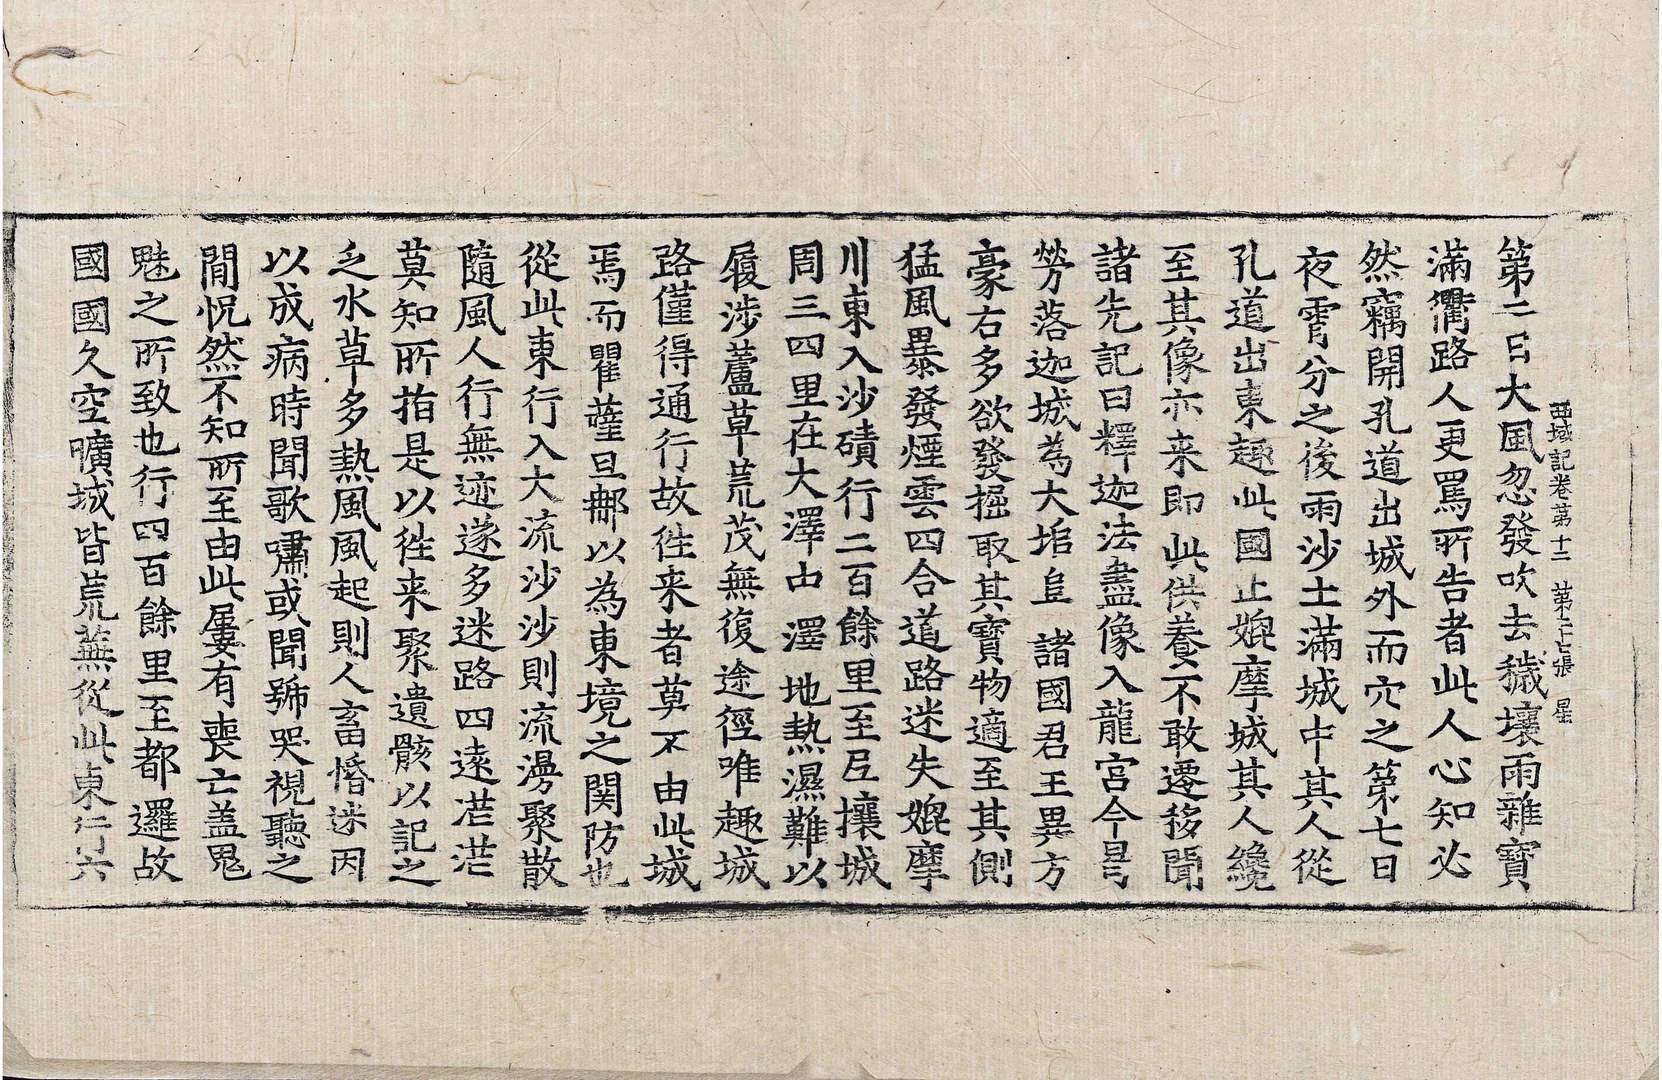 西域記卷第十二 第二十七張 星
第二日大風忽發吹去穢壤雨雜寶
滿衢路人更罵所告者此人心知必
然竊開孔道出城外而穴之第七日
夜霄分之後雨沙土滿城中其人從
孔道出東趣此國止媲摩城其人纔
至其像亦来即此供養不敢遷移聞
諸先記曰釋迦法盡像入龍宮今曷
勞落迦城為大塠𠂤諸國君王異方
豪右多欲發掘取其寶物適至其側
猛風暴發煙雲四合道路迷失媲摩
川東入沙磧行二百餘里至尼攘城
周三四里在大澤中澤地熱濕難以
履涉蘆草荒茂無復途徑唯趣城
路僅得通行故徃来者莫不由此城
焉而瞿薩旦那以為東境之関防也
從此東行入大流沙沙則流漫聚散
隨風人行無迹遂多迷路四遠茫茫
莫知所指是以徃来聚遺骸以記之
乏水草多熱風風起則人畜惛迷因
以成病時聞歌嘯或聞號哭視聽之
閒怳然不知所至由此屢有喪亡盖鬼
魅之所致也行四百餘里至都邏故
國國久空曠城皆荒蕪從此東行六